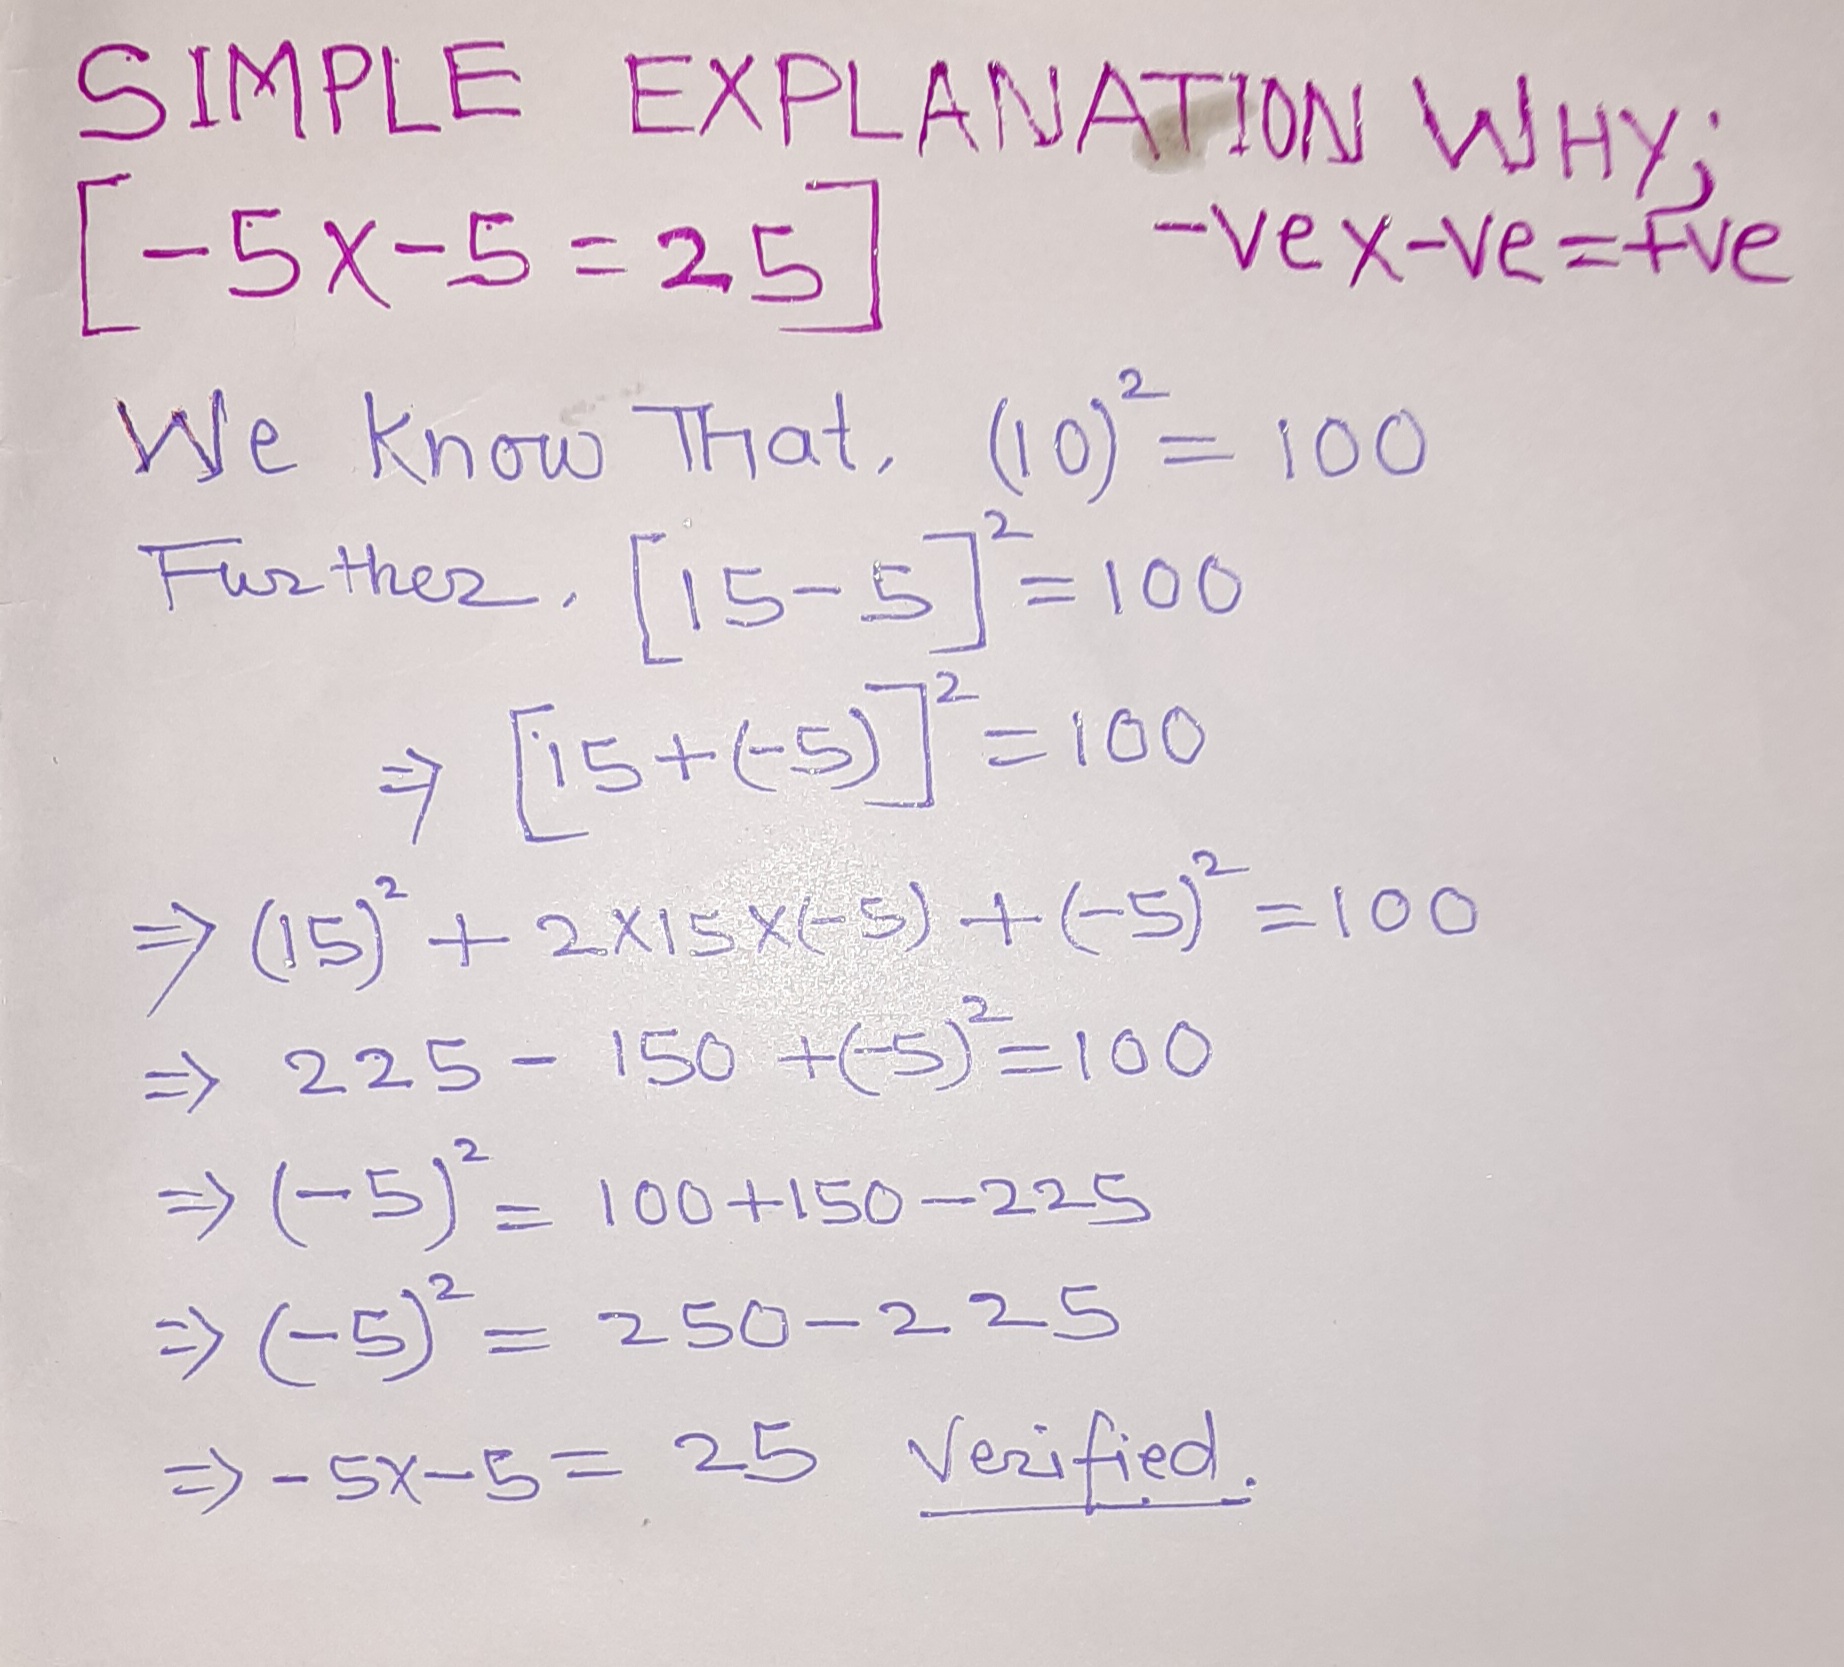 SIMPLE EXPLANATION WHY;
[-5x-5=25] -vex-ve=+ve
We know That, (10)²=100
Further, [15-5]²=100
⇒ [15+(-5)]²=100
⇒ (15)²+2x15x(-5)+(-5)²=100
⇒ 225-150+(-5)²=100
⇒ (-5)²=100+150-225
⇒ (-5)²=250-225
⇒ -5x-5=25 Verified.